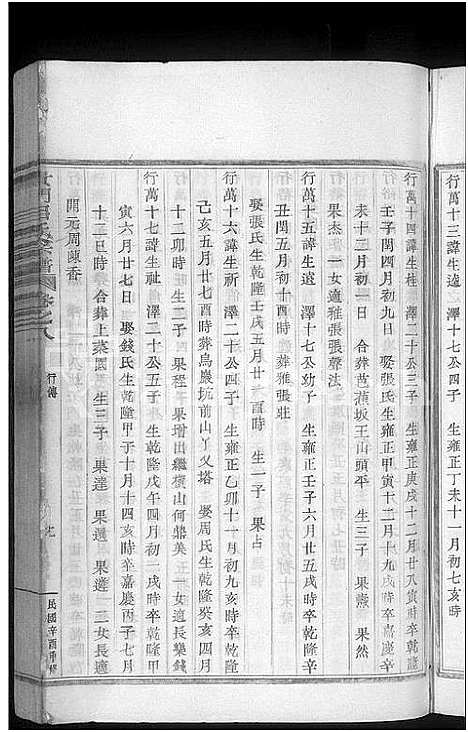 行萬十三諱生遠　澤十七公四子　生雍正丁未十一月初七亥時
行萬十四諱生桂　澤二十公三子　生雍正庚戌十二月廿八寅時卒乾隆
壬子閏四月初九日　娶張氏生雍正甲寅十二月十九戌時卒嘉慶辛
未十二月初一日　合葬苴蓮坂王山頭平　生三子　果燕　果然
果杰　一女適雅張張聲法
行萬十五諱生遠　澤十七公幼子　生雍正壬子六月廿五戌時卒乾隆辛
丑閏五月初十酉時　葬雅張莊
娶張氏生乾隆壬戌五月廿一酉時　生一子　果占
行萬十六諱生祈　澤二十公四子　生雍正乙卯十一月初九亥時卒乾隆
己亥五月廿七酉時葬烏巖坑前山丫乂塔　娶周氏生乾隆癸亥四月
十二卯時　生二子　果程　果增出繼橫山何鼎美　一女適長樂錢
行萬十七諱生祉　澤二十公五子　生乾隆戊午四月初一戌時卒乾隆甲
寅六月廿七日　娶錢氏生乾隆甲子十月十四亥時卒嘉慶丙子七月
十三巳時　合葬上菜園　生三子　果達　果選　果進　二女長適
開元周陳香
卷之八
行傳
民國辛酉重修